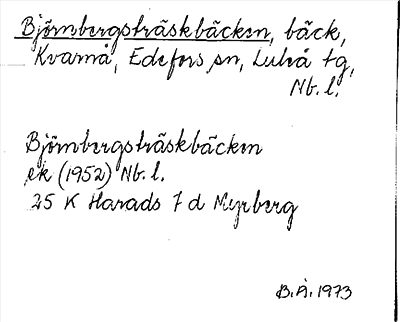 Björnbergsträskbäcken, bäck,
Kvarnå, Edefors sn, Luleå tg,
Nb. l.
Björnbergsträskbäcken
ek (1952) Nb. l.
25 K Harads 7 d Myrberg
B.Å. 1973